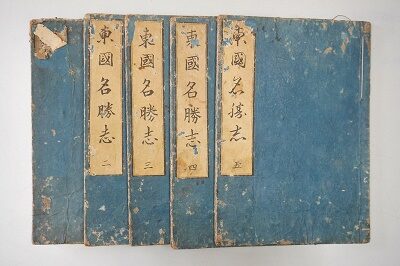 東國名勝志 二
東國名勝志 三
東國名勝志 四
東國名勝志 五